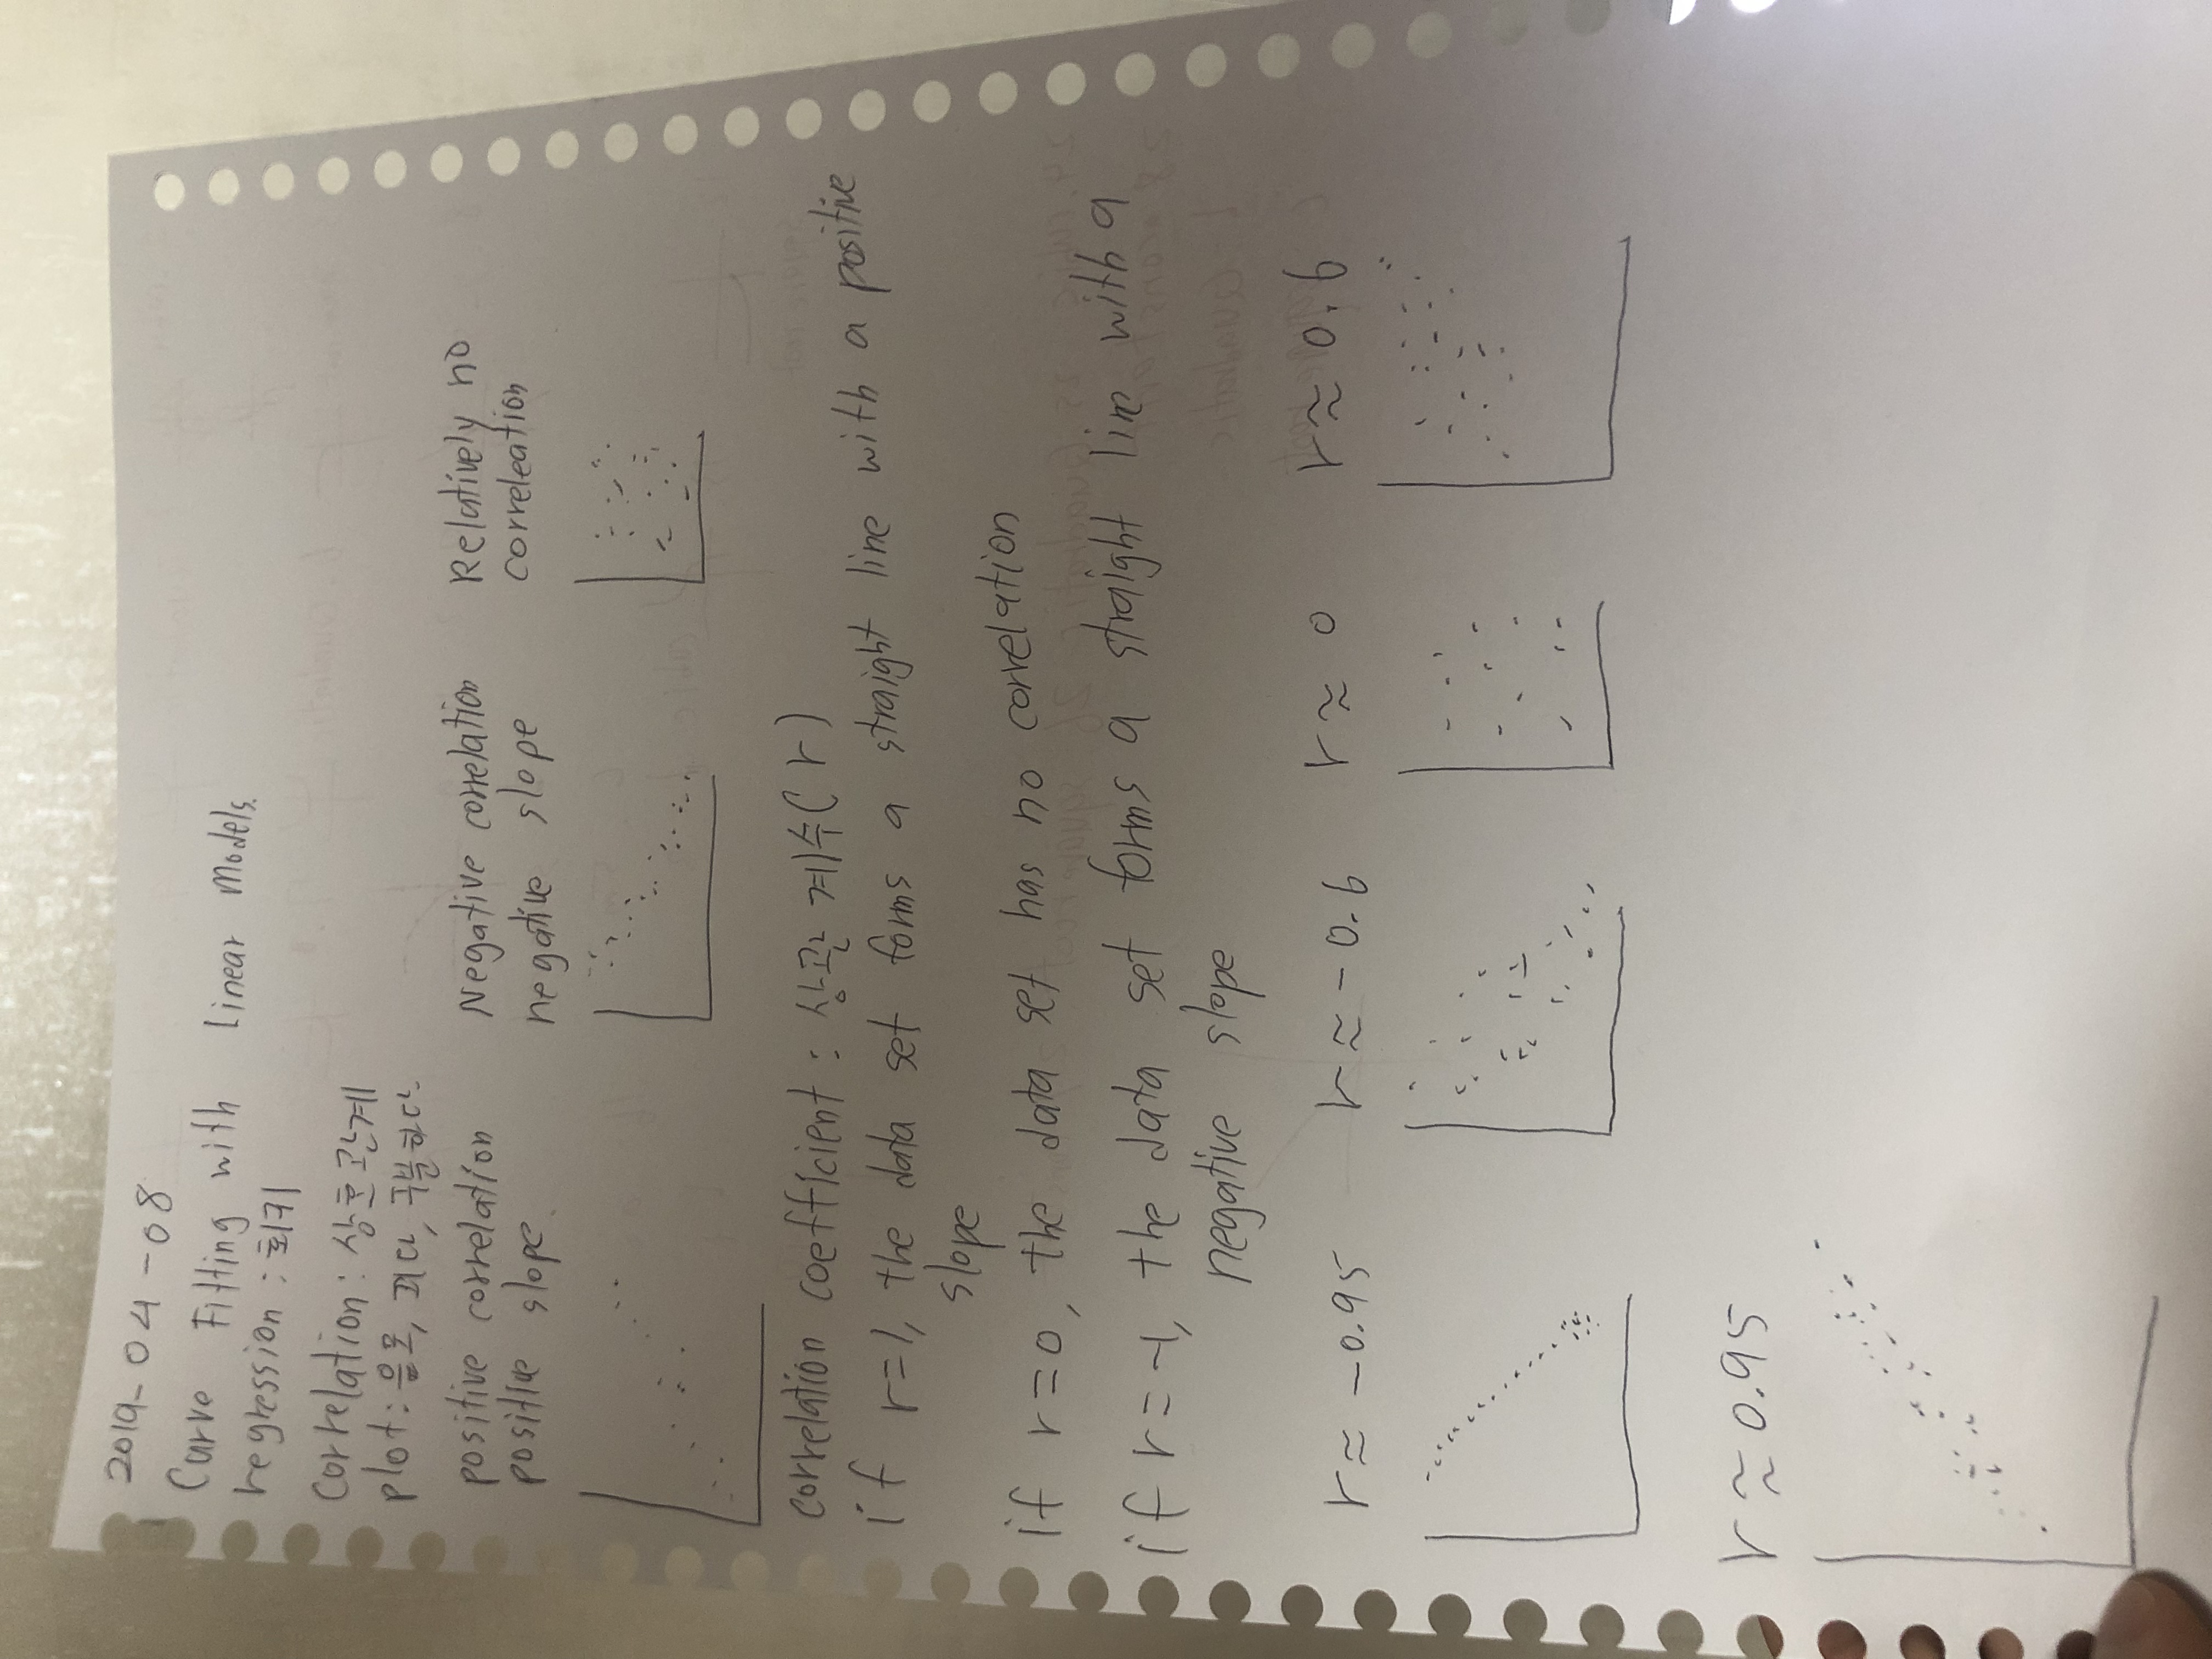 2019-04-08
Curve Fitting with linear models.
regression : 회귀
Correlation : 상호관계
plot : 음모, 꾀다, 구분하다.
positive correlation
positive slope.
Negative correlation
negative slope
Relatively no
correleation
correlation coefficient : 상관 계수( r )
if r=1, the data set forms a straight line with a positive
slope
if r=0, the data set has no correlation
if r=-1, the data set forms a straight line with a
negative slope
r≈-0.95 r≈-0.6 r≈0 r≈0.6
r≈0.95